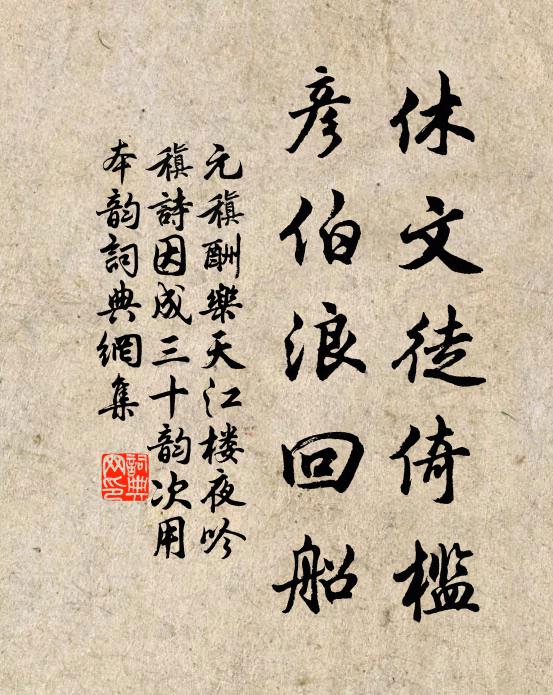 休文徒倚檻
彦伯浪回船
元稹酬樂天江楼夜吟
稹詩因成三十韵次用
本韵詞典網集
詞典网印